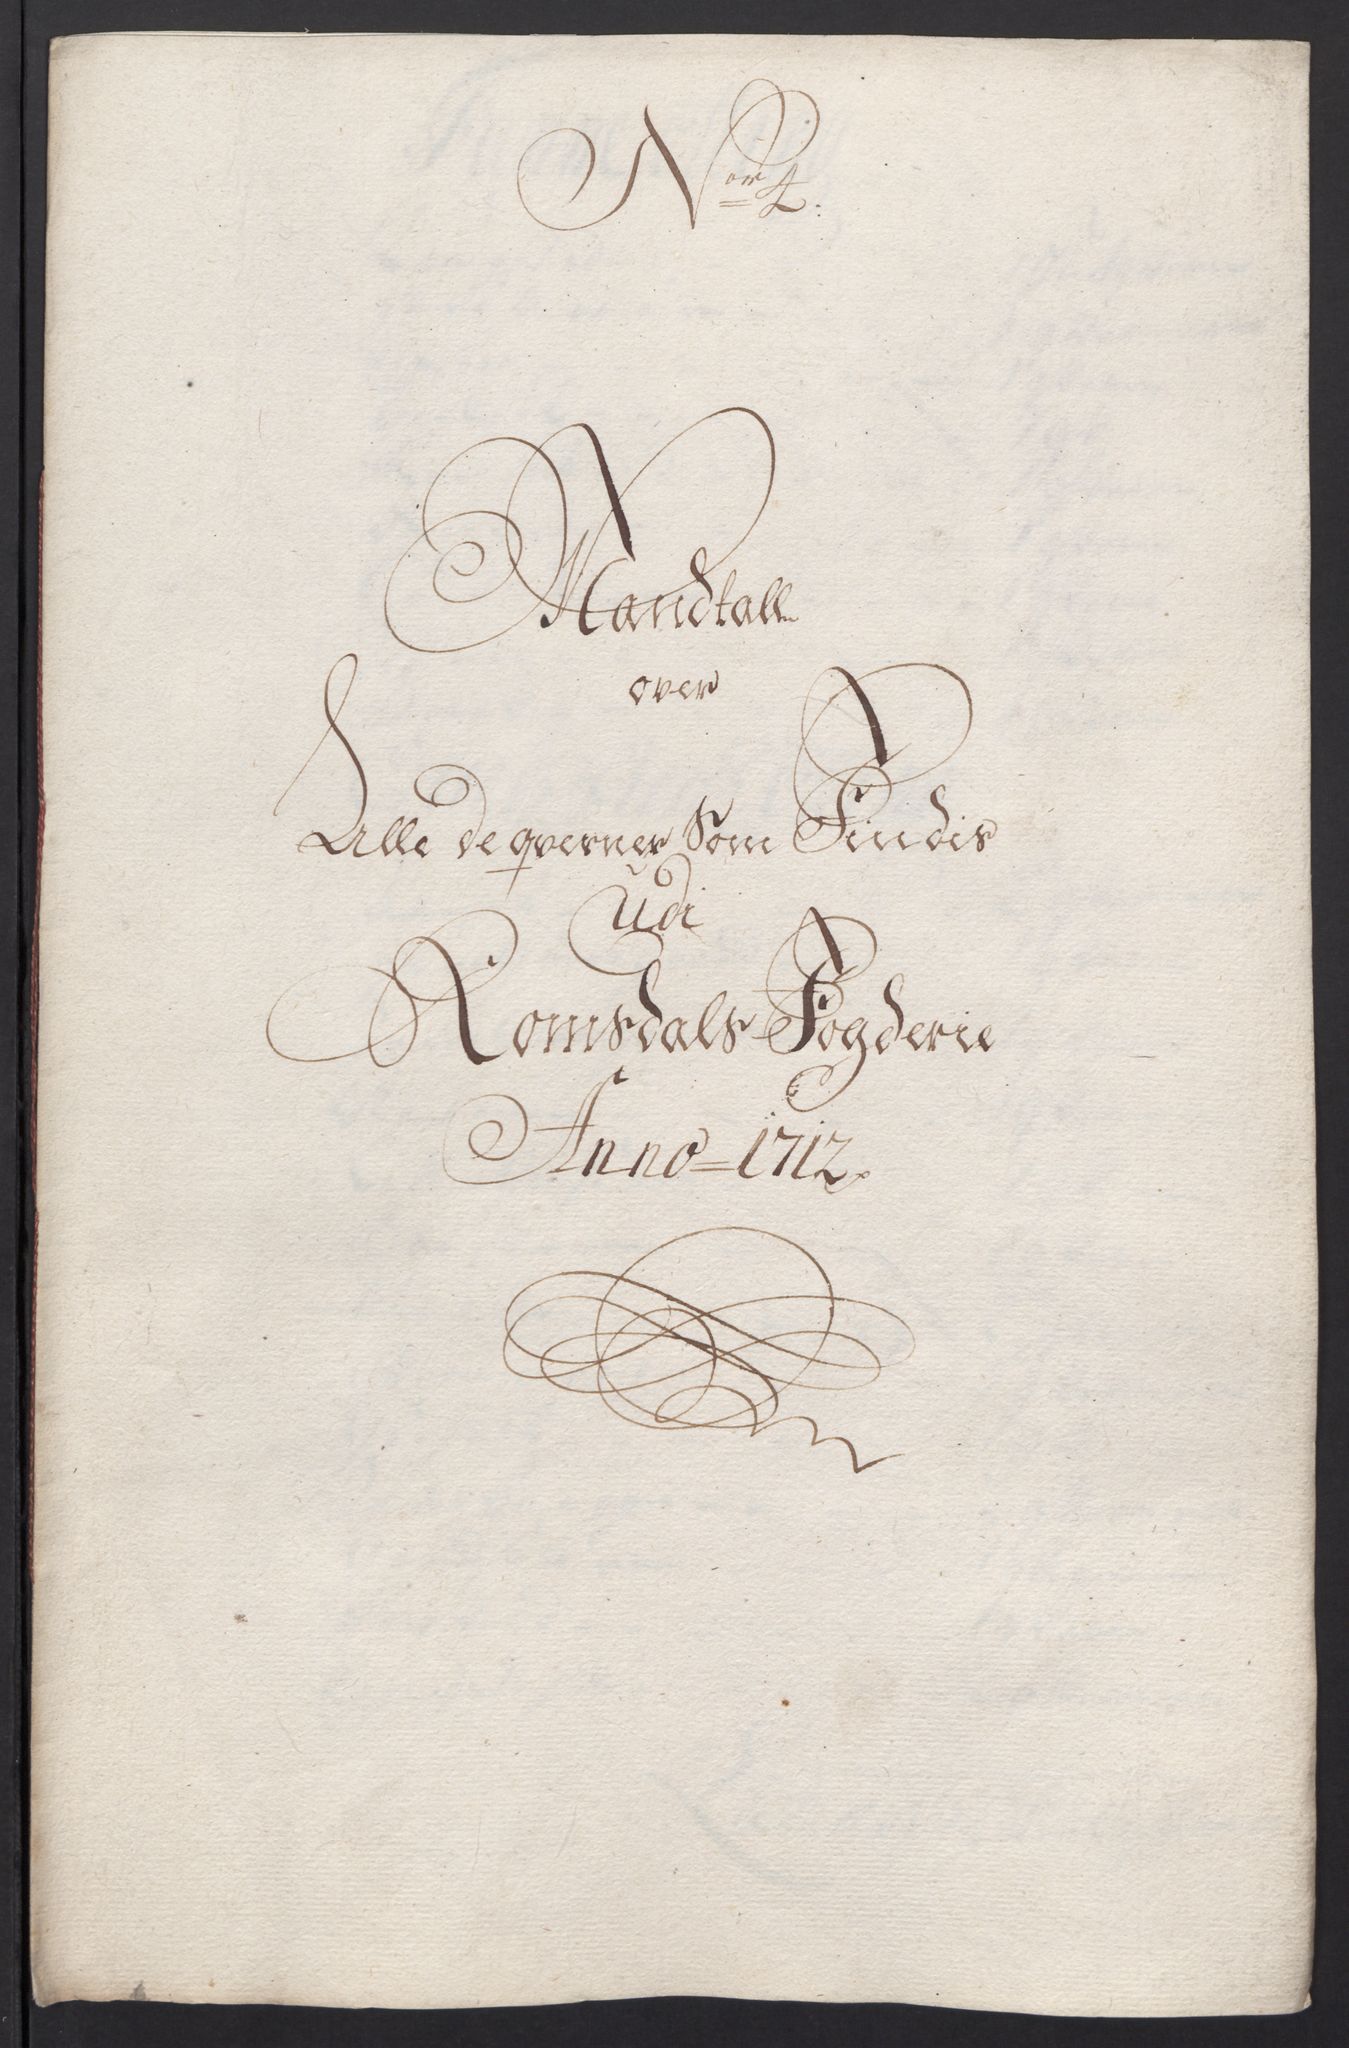 Nor 4.
Mandtall
over
Alle de qverner Som Findis
Udi
Romsdals Fogderie
Anno = 1712.